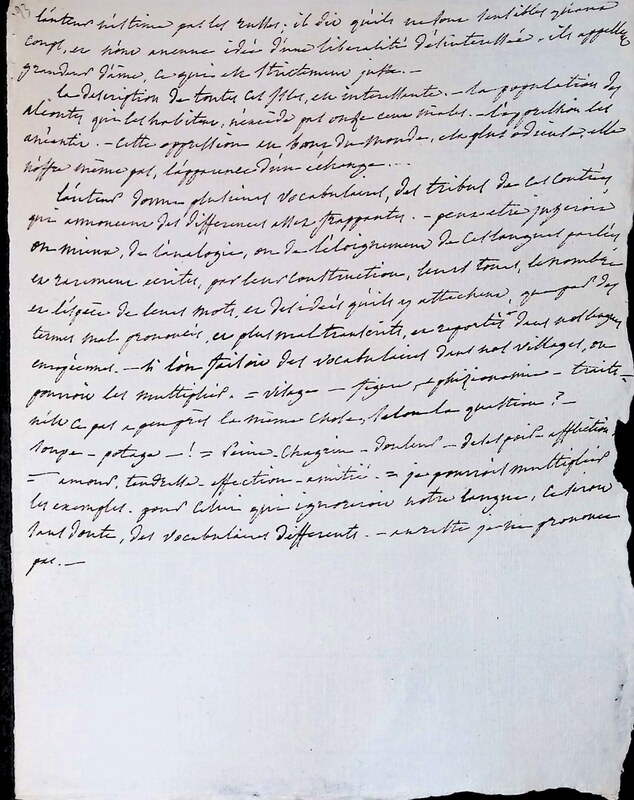 93
l'auteur n'estime pas les russes. il dit qu'ils ne sont sensibles qu'aux
coups, et n'ont aucune idée d'une liberalité désinteressée. ils appellent
grandeur d'ame, ce qui est strictement juste. —
la description de toutes ces isles, est interessante. — la population des
aleoutes qui les habitent, n'excède pas onze cens males. — l'oppression les
anéantit. — cette oppression au bout du monde, est plus odieuse, elle
n'offre même pas, l'apparence d'un échange...
l'auteur donne plusieurs vocabulaires, des tribus de ces contrées
qui annoncent des differences assez frappantes. — peut-etre jugeroit
on mieux, de l'analogie, ou de l'éloignement de ces langues parlées
et rarement ecrites, par leur construction, leurs tours, le nombre
et l'espèce de leurs mots, et des idées qu'ils y attachent, que par des
termes mal prononcés, et plus mal transcrits, et reportés dans nos langues
européennes. — si l'on faisoit des vocabulaires dans nos villages, on
pourroit les multiplier. = visage — figure — phisionomie — traits —
n'est ce pas a peu près la même chose, selon la question ? —
soupe — potage — ! = peine — chagrin — douleur — desespoir — affliction.
= amour, tendresse — affection — amitié. = je pourrois multiplier
les exemples. pour celui qui ignoreroit notre langue, ce seroit
sans doute, des vocabulaires differents. — au reste je ne prononce
pas. —